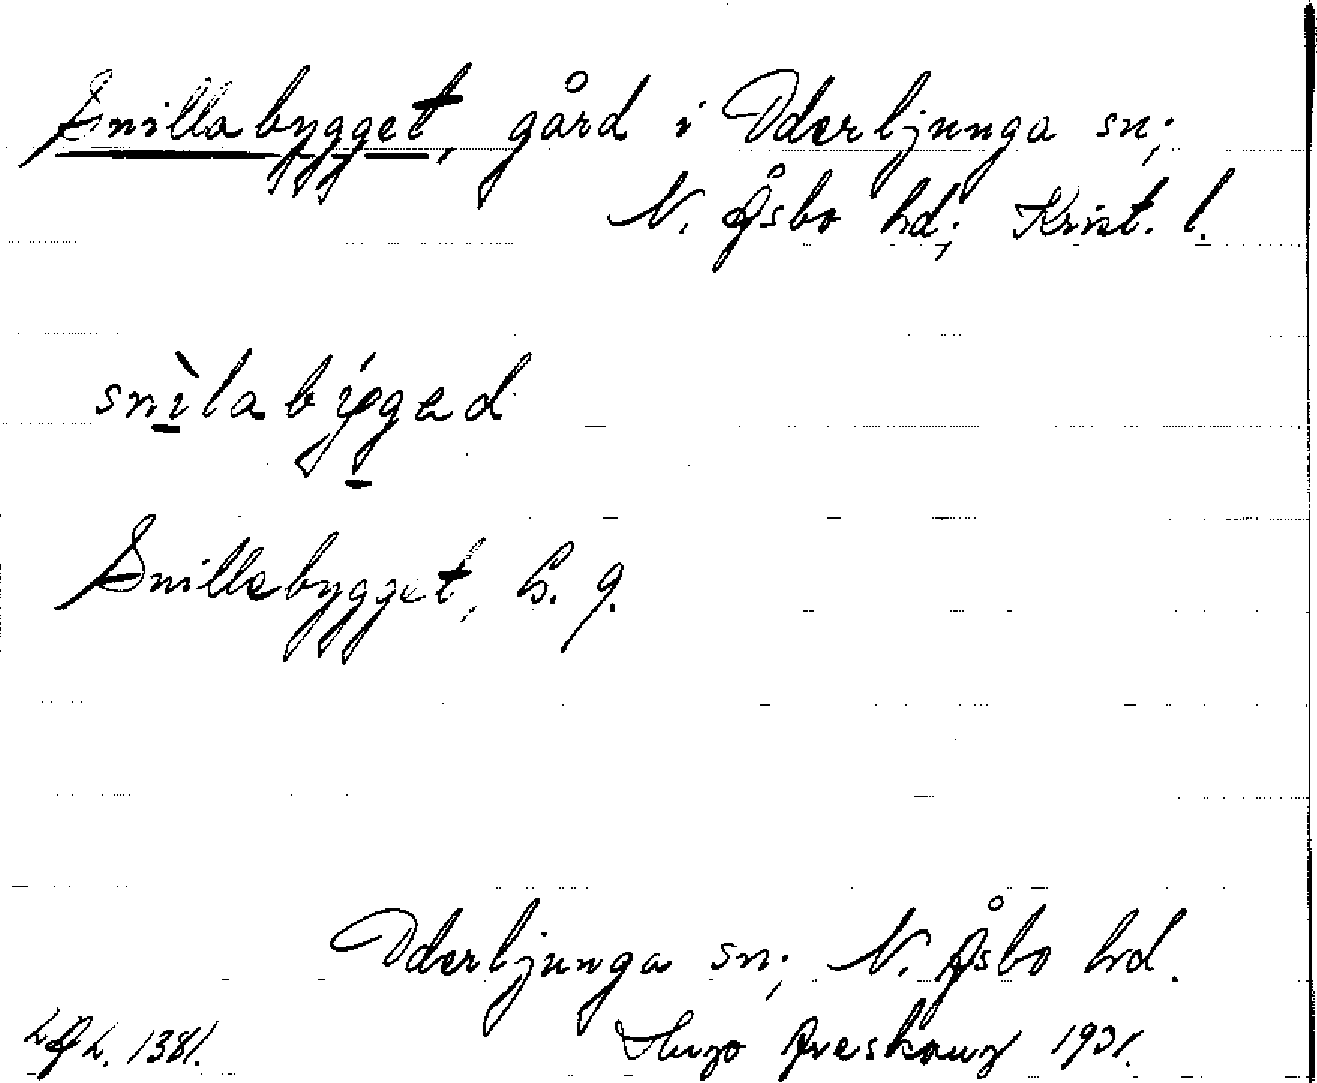 Snillabygget, gård i Oderljunga sn;
N. Åsbo hd; Krist. l.
snìlabýgad
Snillabygget, h. g.
Oderljunga sn; N. Åsbo hd.
Hugo Areskoug 1931.
LAL. 1381.